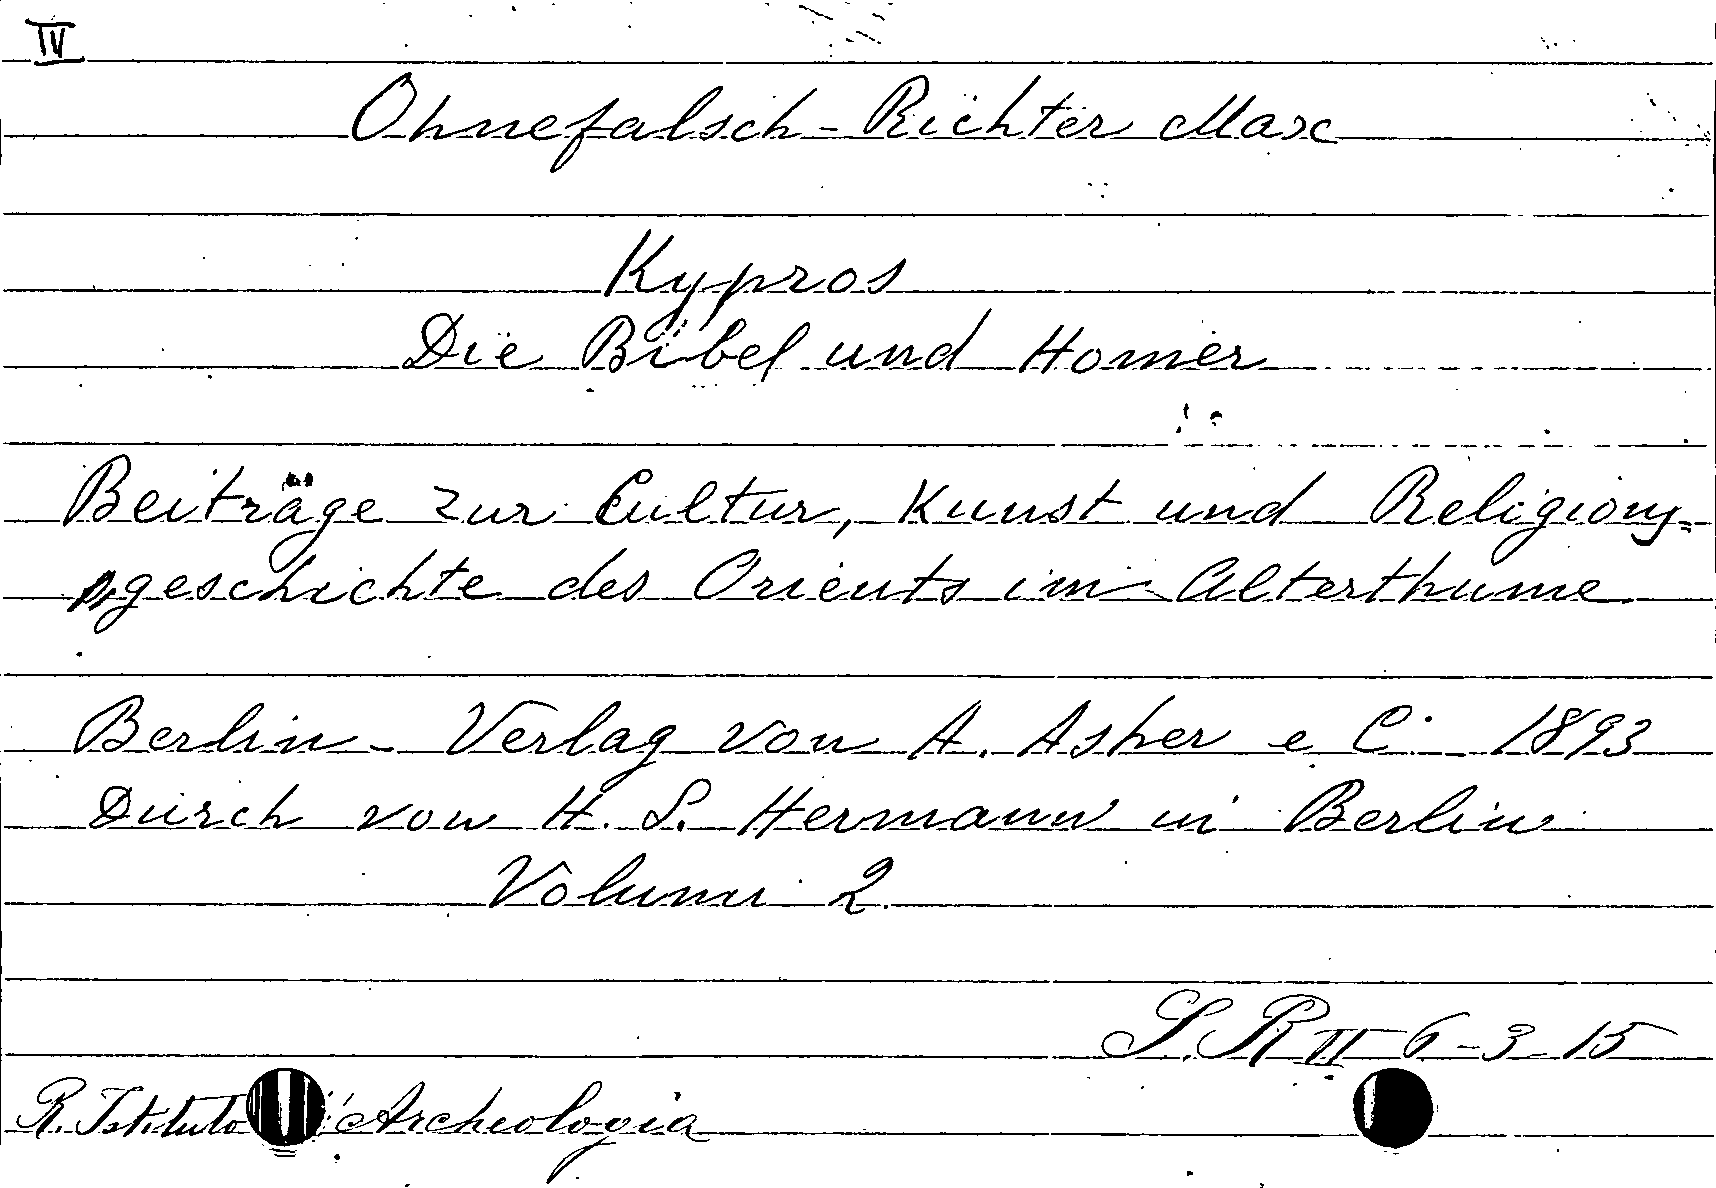 IV
Ohnefalsch-Richter Max
Kypros
Die Bibel und Homer
Beiträge zur Cultur, Kunst und Religions=
geschichte des Orients im Alterthume
Berlin - Verlag von A. Asher e C. 1893
Durch von H. S. Hermann in Berlin
Volumi 2
S. R II 6-3-15
R. Istituto Archeologia